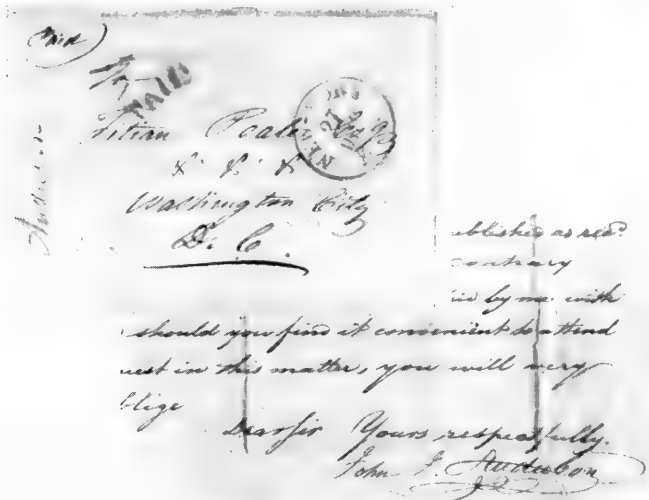 Paid
PAID
Titian Peale Esqr
&. &. &
Washington City
D. C.
NEW
21
ublished as read
contrary
by me with
should you find it convenient to attend
uest in this matter, you will very
blige
Dear Sir Yours respectfully.
John J. Audubon